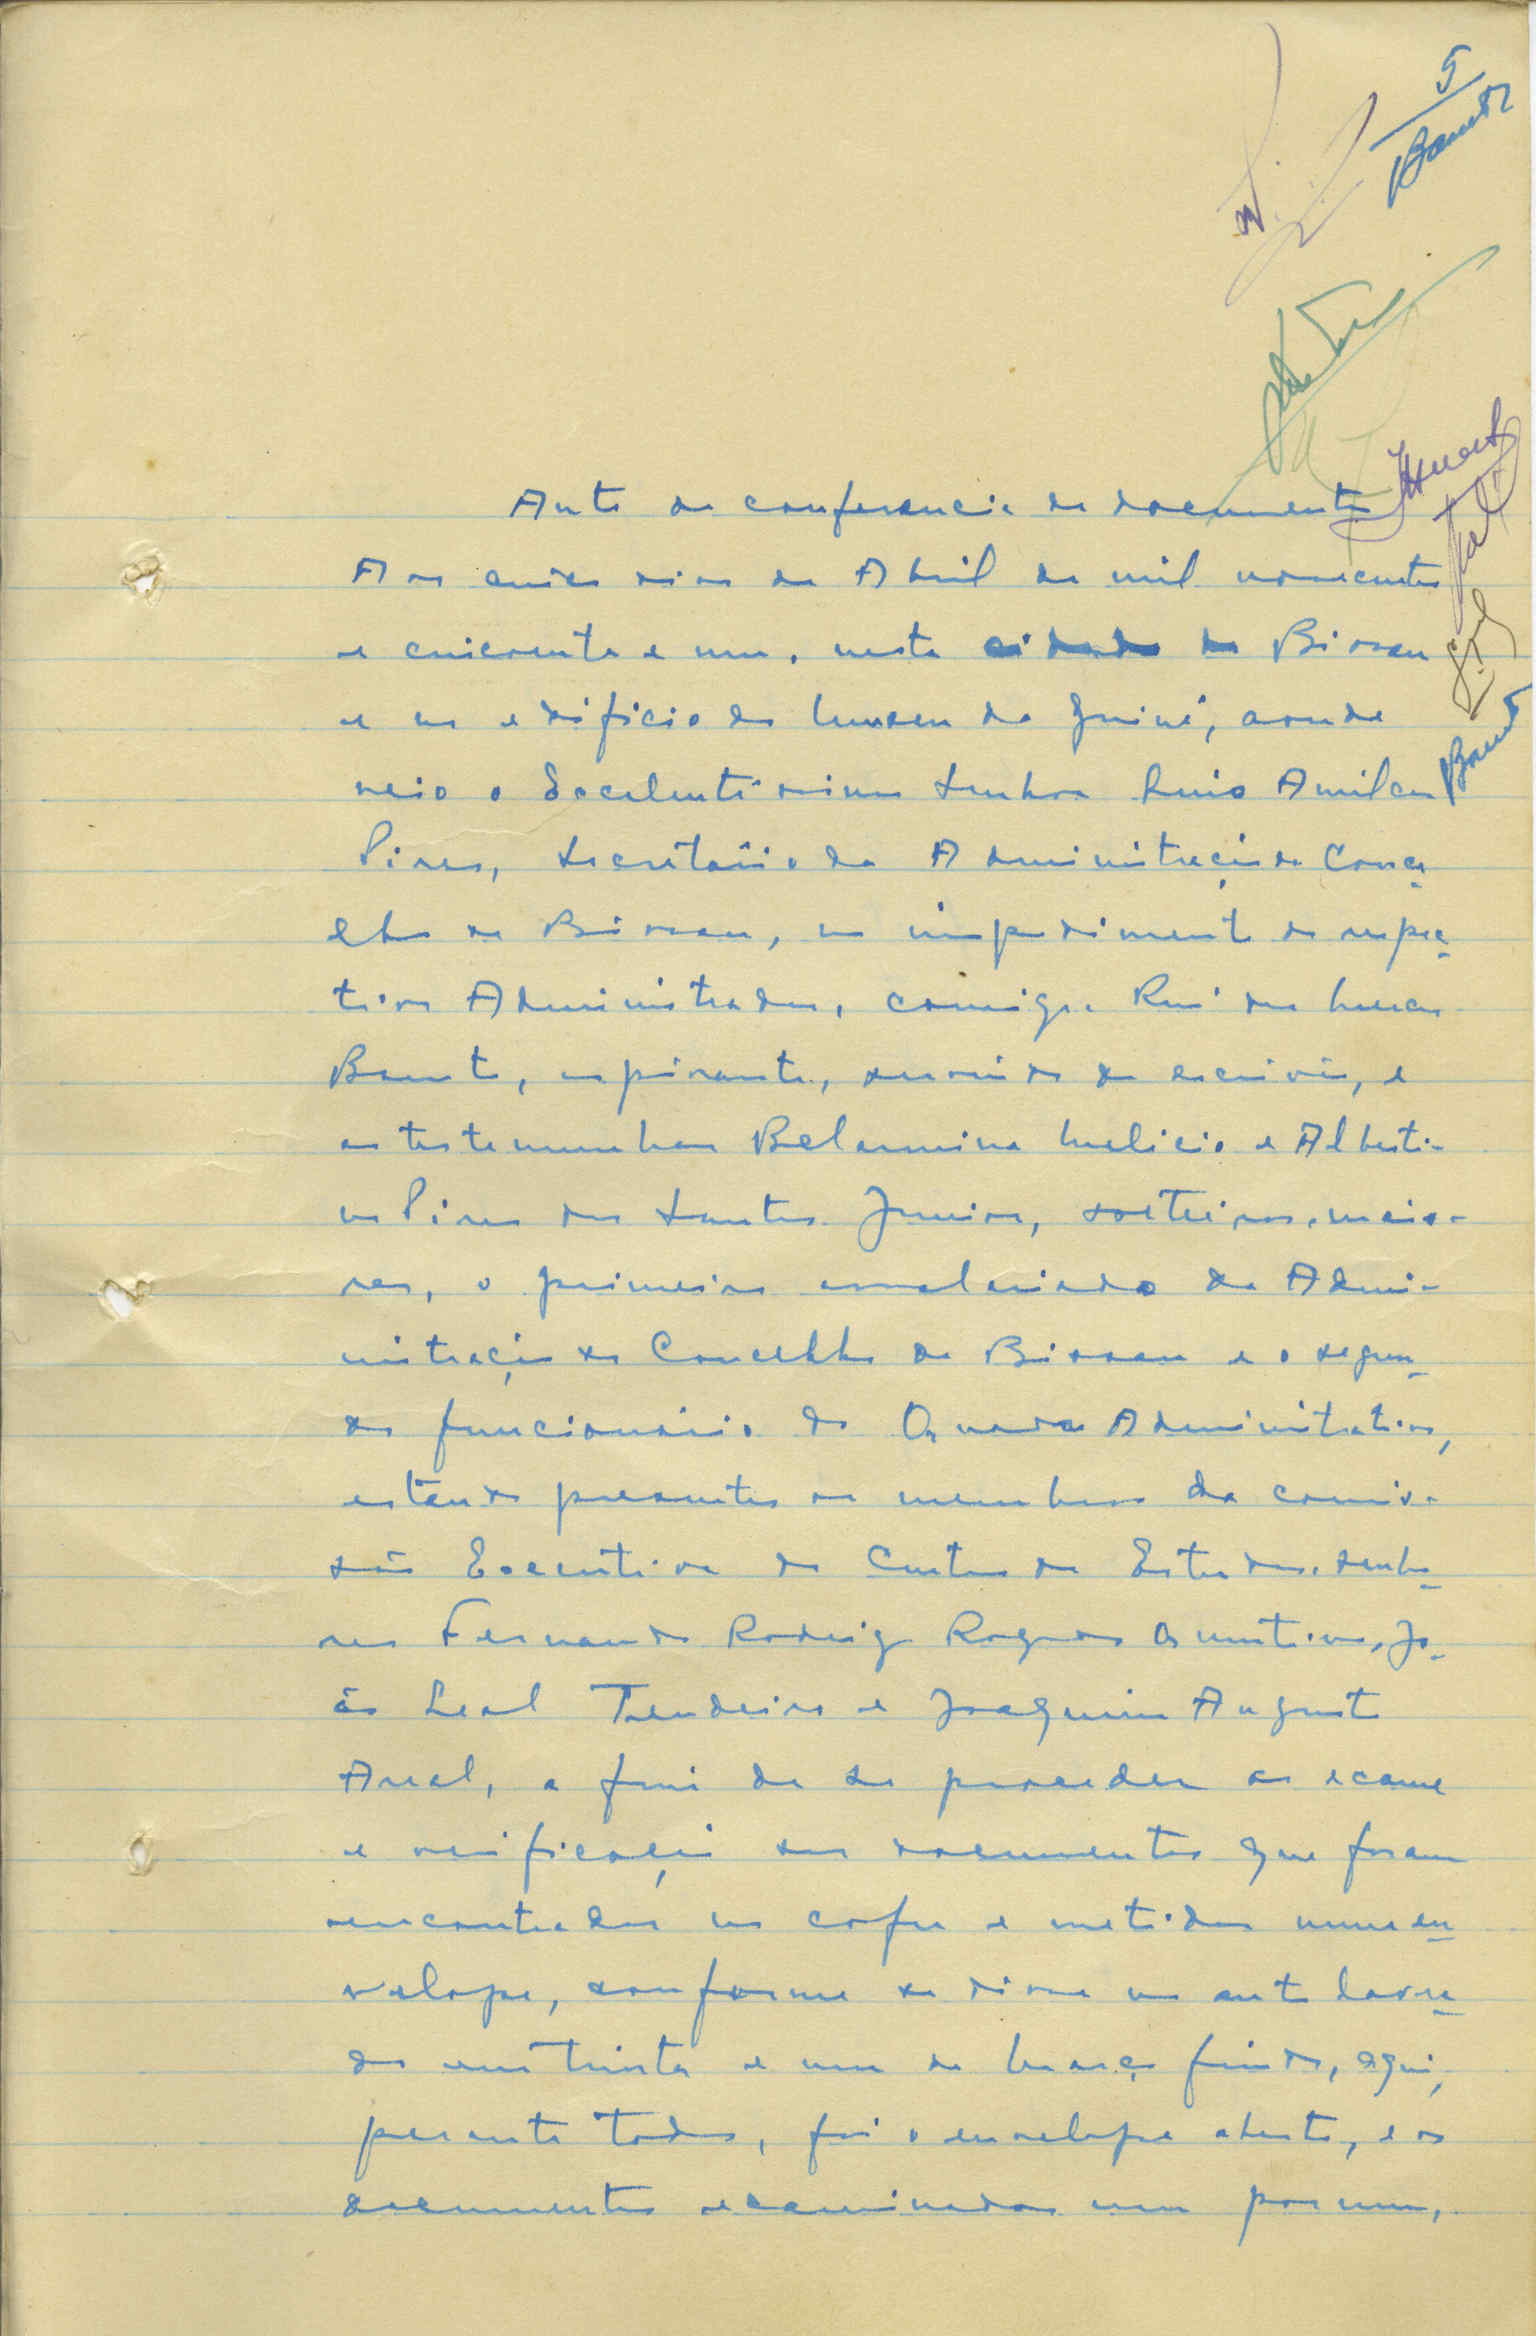 5
Auto de conferencia de documentos
Aos cinco dias de Abril de mil novecentos
e cincoenta e um, nesta cidade de Bissau
e no edificio do Museu da Guiné, aonde
veio o Excelentissimo Senhor Luis Amilcar
Pires, Secretário da Administração do Conce
lho de Bissau, no impedimento do respec
tivo Administrador, comigo Rui das
aspirante, servindo de escrivão, e
as testemunhas Belarmino e Alberti-
no Pires dos Santos Junior, solteiros, maio-
res, o primeiro assalariado da Admi-
nistração do Concelho de Bissau e o segun
do funcionário do Quadro Administrativo,
estando presentes os membros da comis-
são Executiva do Centro de Estudos, senho
res Fernando Rodrigo Rogado Quintino, Jo
ão Leal Tendeiro e Joaquim Augusto
Areal, a fim de se proceder ao exame
e verificação dos documentos que foram
encontrados no cofre e metidos num en
velope, conforme se disse no auto lavra
do em trinta e um de Março findo, aqui,
perante todos, foi o envelope aberto, e os
documentos examinados um por um,